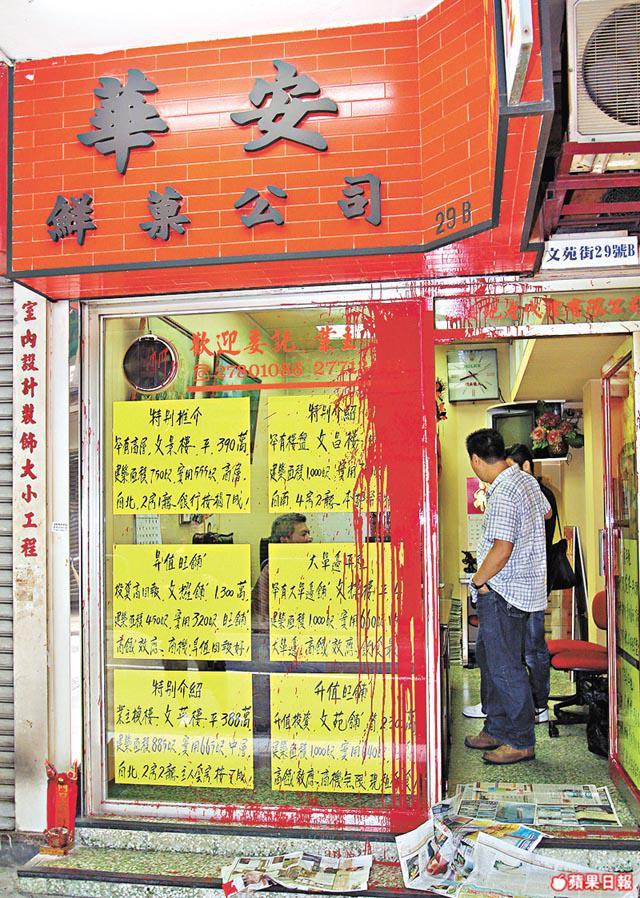 華安
鮮菓公司
29B
文苑街29號B
室內設計裝飾大小工程
歡迎委託 業主
27801088 2771
ROLEX
特別推介
文景樓、平、390萬
建築面積750呎,實用555呎,高層,
向北,2房1廳、銀行按揭7成!
特別介紹
罕有樓盤、文昌樓、
建築面積1000呎,實用
向西,4房2廳、
昇值旺舖
投資高回報 文耀舖 1,300萬
建築面積450呎,實用320呎,旺舖
高鐵效應、商機昇值回報好!
大單邊平
罕有大單邊舖 文
建築面積1000呎,實用660
大單邊、高鐵效應、
特別介紹
業主換樓、文英樓、平388萬
建築面積889呎,實用669呎,中層
向北,2房2廳、
升值旺舖
升值投資 文苑舖 230萬
建築面積1000呎,實用640
高鐵效應、商機無限
蘋果日報